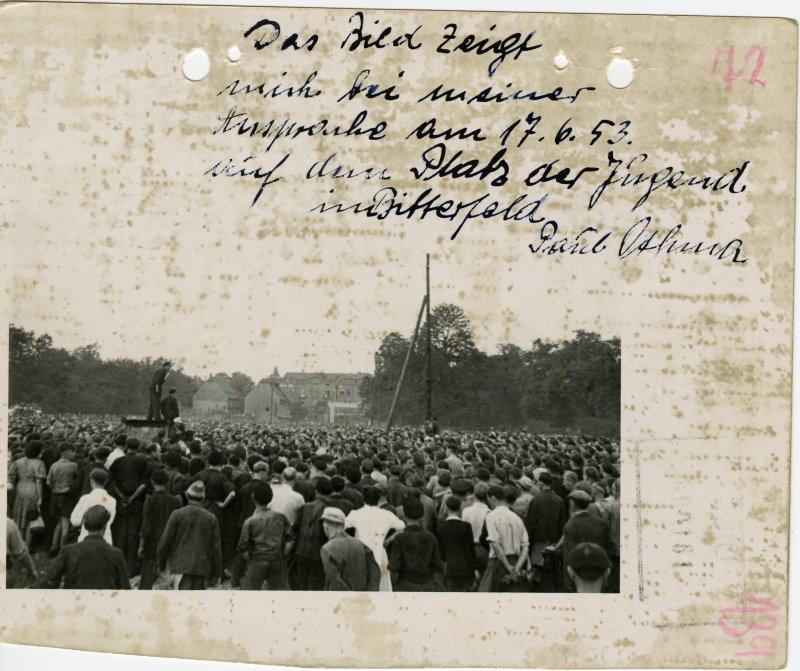 Das Bild zeigt
72
mich bei meiner
Ansprache am 17.6.53.
auf dem Platz der Jugend
in Bitterfeld
Paul Othma